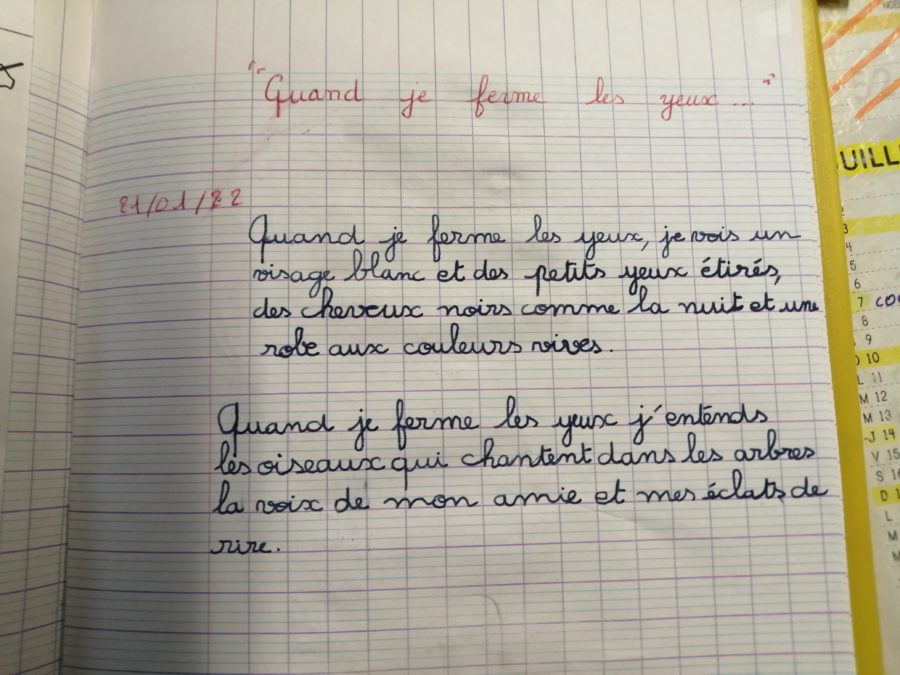 "Quand je ferme les yeux..."
21/01/22
Quand je ferme les yeux, je vois un
visage blanc et des petits yeux étirés,
des cheveux noirs comme la nuit et une
robe aux couleurs vives.
Quand je ferme les yeux j'entends
les oiseaux qui chantent dans les arbres
la voix de mon amie et mes éclats de
rire.
UILL
3
4
5
6
7
8
9
D 10
L 11
M 12
M 13
J 14
V 15
L
M
M